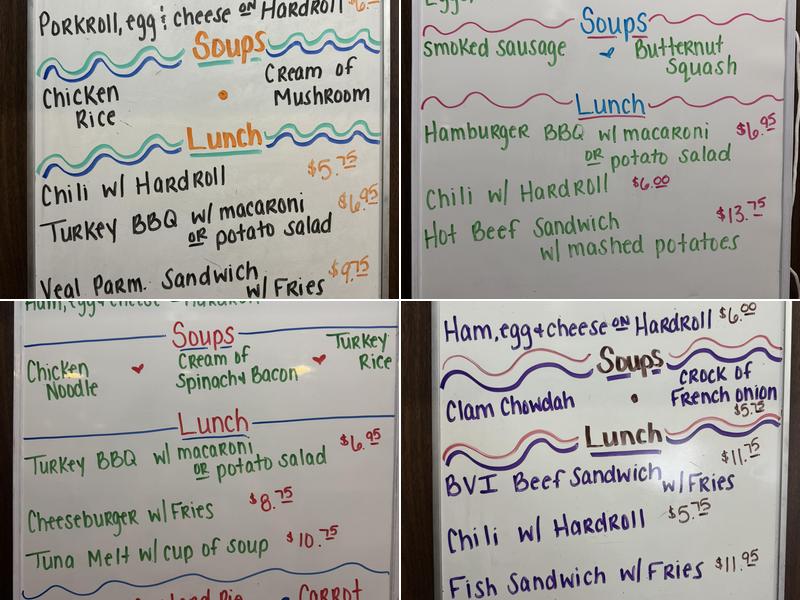 PORKROLL, egg & cheese ON HARDROLL
Soups
CHICKEN RICE • CREAM OF MUSHROOM
Lunch
CHILI W/ HARDROLL $5.75
TURKEY BBQ w/ macaroni $6.95
OR potato salad
Veal PARM. Sandwich $9.75
w/ FRIES
Soups
smoked sausage BUTTERNUT Squash
Lunch
HAMBURGER BBQ w/ macaroni $6.95
OR potato salad
CHILI w/ HARDROLL $6.00
HOT BEEF Sandwich $13.75
w/ mashed potatoes
Ham, egg & cheese
Soups
Chicken Noodle ♥ CREAM OF Spinach & Bacon ♥ TURKEY RICE
Lunch
TURKEY BBQ w/ macaroni $6.95
OR potato salad
Cheeseburger w/ FRIES $8.75
Tuna Melt w/ cup of soup $10.75
CARROT
Ham, egg & cheese ON HARDROLL $6.00
Soups
Clam Chowdah • CROCK OF FRENCH ONION
$5.75
Lunch
BVI Beef Sandwich $11.75
w/ FRIES
Chili w/ HARDROLL $5.75
Fish Sandwich w/ FRIES $11.95